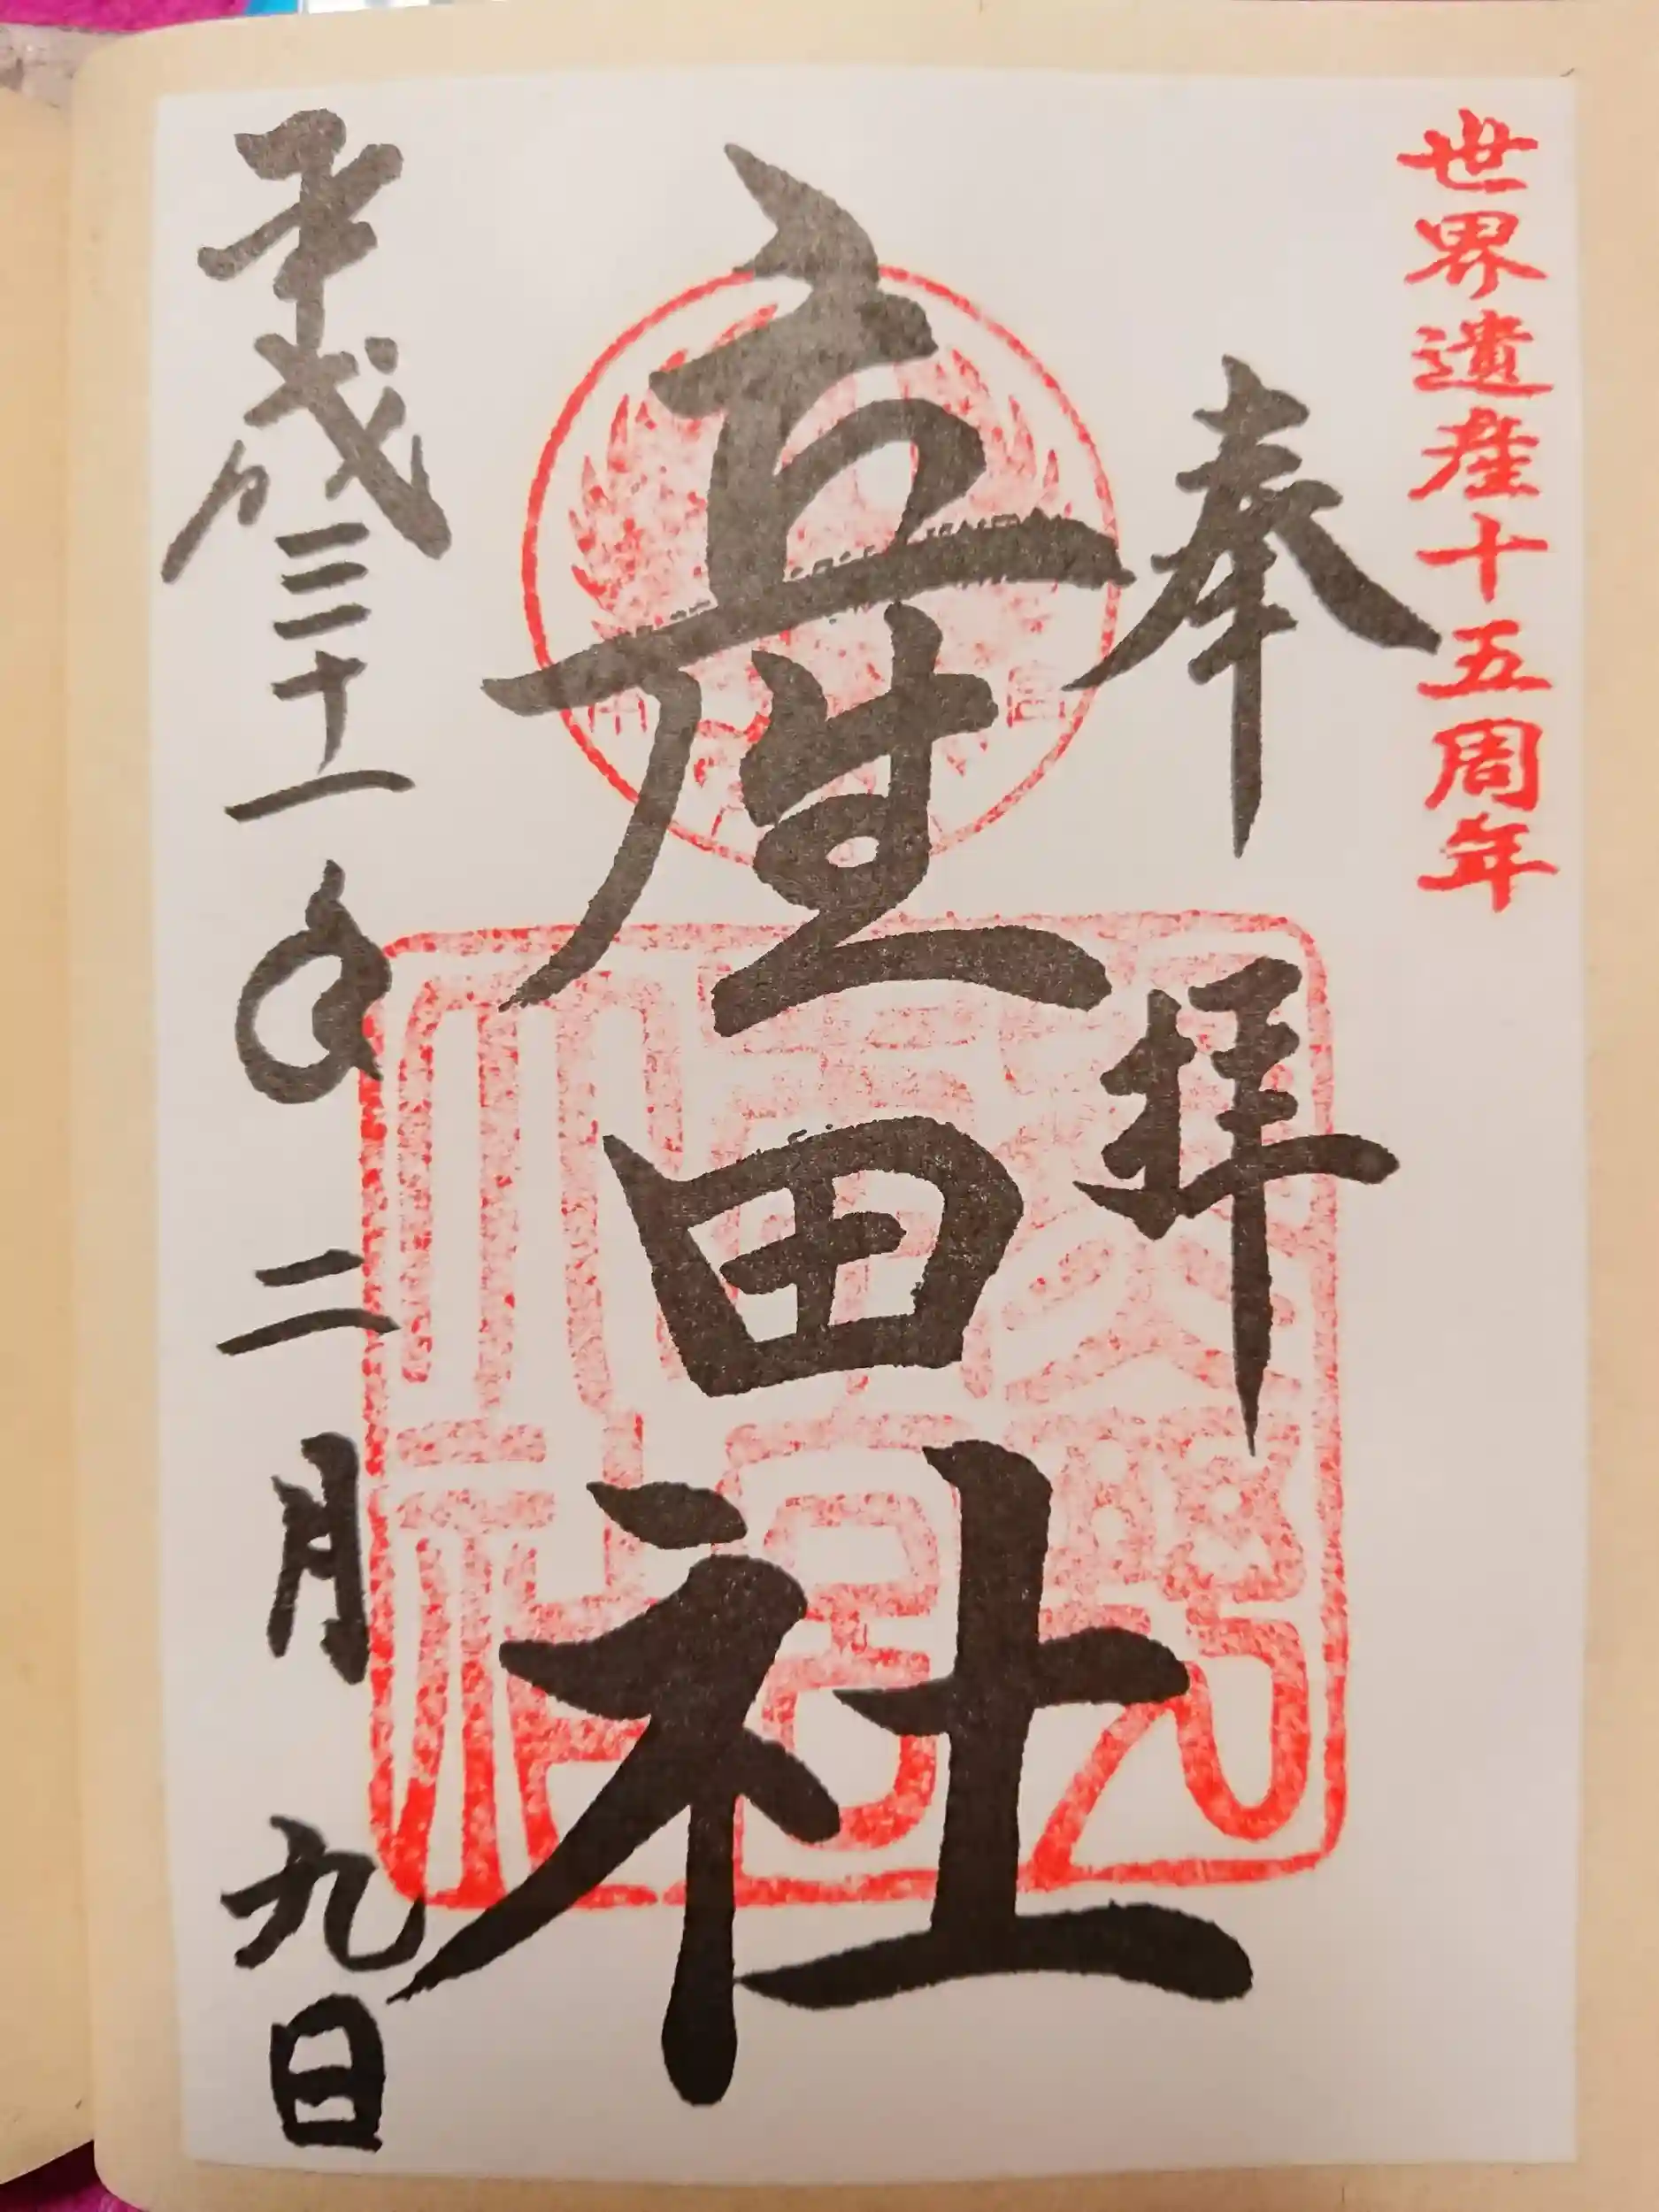 世界遺産十五周年
奉拝
産田社
平成三十一年二月九日